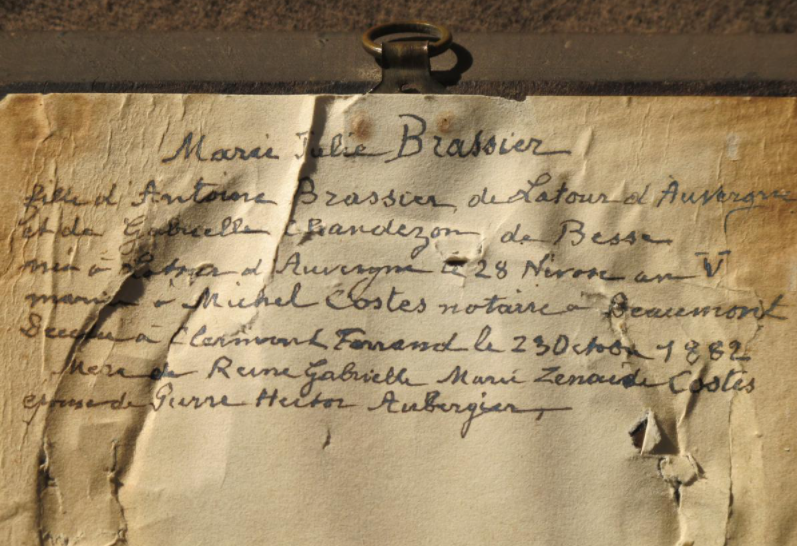 Marie Julie Brassier
fille d'Antoine Brassier, de Latour d'Auvergne
et de Gabrielle Chandezon de Besse
née à Latour d'Auvergne le 28 Nivose an V
mariée à Michel Costes notaire a Beaumont
Décédée à Clermont Ferrand le 23 Octobre 1882
Mere de Reine Gabrielle Marie Zenaide Costes
epouse de Pierre Hector Aubergier